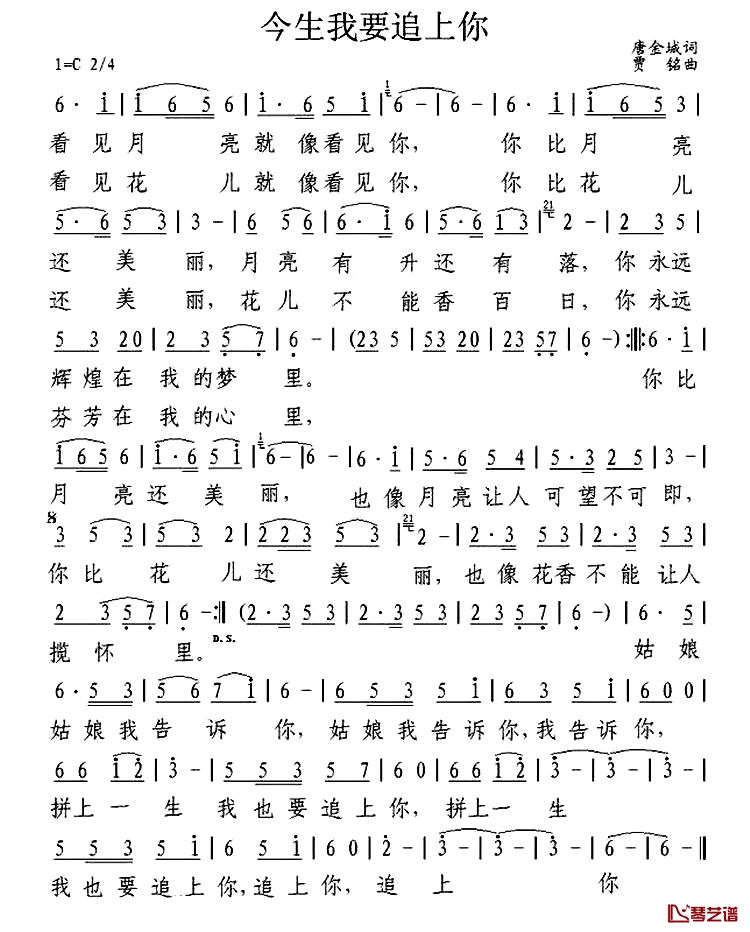 今生我要追上你
唐金城词
1=C 2/4
贾 铭曲
6· i | i 6 5 | i· 6 5 i | 6 - | 6 - | 6· i | i 6 5 3 |
看见月 亮就 像看见你, 你 比月 亮
看见花 儿就 像看见你, 你 比花 儿
5· 6 5 3 | 3 - | 6 5 6 | 6· i 6 | 5· 6 1 3 | 2 - | 2 3 5 |
还 美 丽, 月 亮 有 升 还 有 落, 你永远
还 美 丽, 花 儿 不 能香 百 日, 你永远
5 3 20 | 2 3 5 7 | 6 - | (23 5 | 53 20 | 23 57 | 6 -) :||: 6· i |
辉煌在 我的梦 里。 你比
芬芳在 我的心 里,
i 6 5 6 | i· 6 5 i | 6 - | 6 - | 6· i | 5· 6 5 4 | 5· 3 2 5 | 3 - |
月 亮还 美 丽, 也像月亮让人可望不可即,
3 5 3 | 5 3 2 | 2 2 3 5 3 | 2 - | 2· 3 5 3 | 2· 3 5 3 |
你比 花 儿还 美 丽, 也像花香不能让人
2 3 5 7 | 6 - :|| (2· 3 5 3 | 2· 3 5 3 | 2 3 5 7 | 6 -) | 6· 5 |
揽 怀 里。 D.S. 姑 娘
6· 5 3 | 5 6 7 i | 6 - | 6 5 3 5 i | 6 5 5 i | 6 0 0 |
姑 娘我告 诉 你, 姑娘我告诉你,我告诉你,
6 6 i 2 | 3 - | 5 5 3 5 7 | 6 0 | 6 6 i 2 | 3 - | 3 - |
拼上一 生 我也要追上你, 拼上一 生
5 5 3 5 i | 6 5 i | 6 0 | 2 - | 3 - | 3 - | 6 - | 6 - ||
我也要追上你,追上你, 追 上 你
琴艺谱